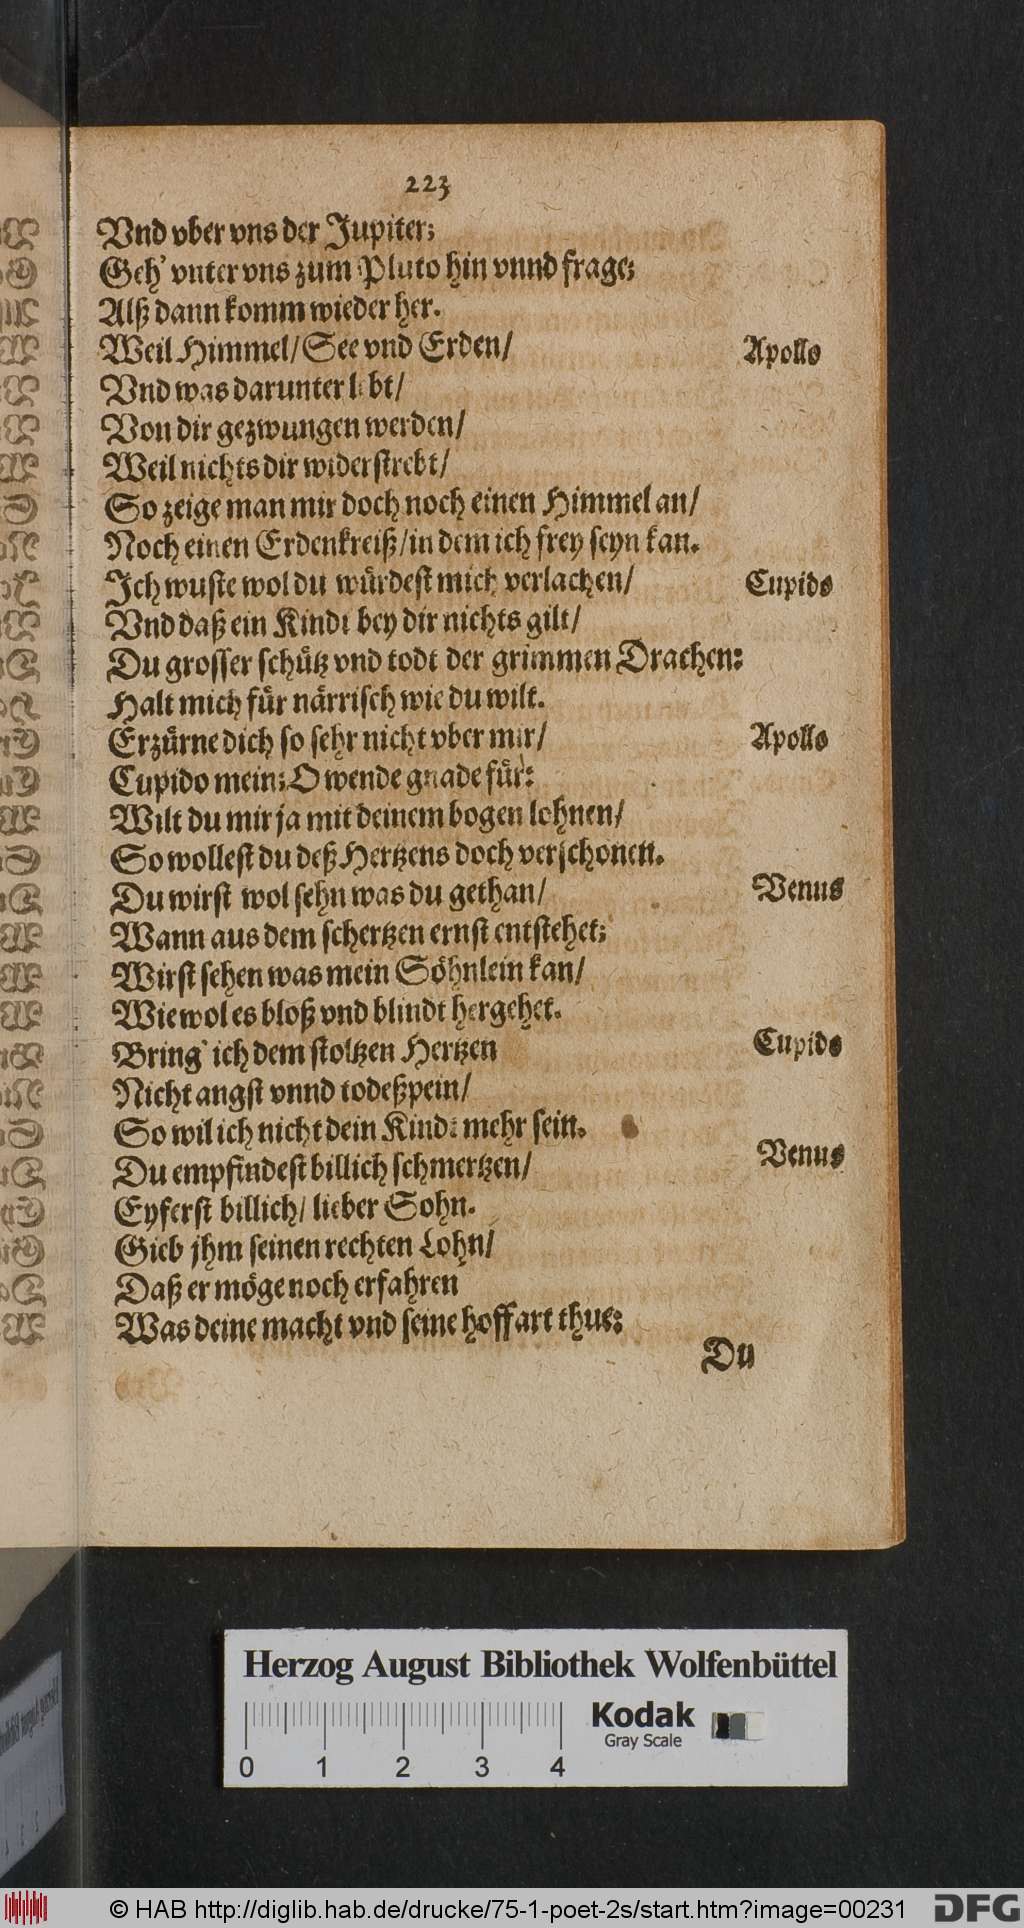 223
Vnd vber vns der Jupiter;
Geh' vnter vns zum Pluto hin vnnd frage;
Alß dann komm wieder her.
Weil Himmel/ See vnd Erden/ Apollo
Vnd was darunter lebt/
Von dir gezwungen werden/
Weil nichts dir widerstrebt/
So zeige man mir doch noch einen Himmel an/
Noch einen Erdenkreiß/ in dem ich frey seyn kan.
Ich wuste wol du würdest mich verlachen/ Cupido
Vnd daß ein Kindt bey dir nichts gilt/
Du grosser schütz vnd todt der grimmen Drachen:
Halt mich für närrisch wie du wilt.
Erzürne dich so sehr nicht vber mir/ Apollo
Cupido mein; O wende gnade für:
Wilt du mir ja mit deinem bogen lohnen/
So wollest du deß Hertzens doch verschonen.
Du wirst wol sehn was du gethan/ Venus
Wann aus dem schertzen ernst entstehet;
Wirst sehen was mein Söhnlein kan/
Wiewol es bloß vnd blindt hergehet.
Bring' ich dem stoltzen Hertzen Cupido
Nicht angst vnnd todeßpein/
So wil ich nicht dein Kindt mehr sein.
Du empfindest billich schmertzen/ Venus
Eyferst billich/ lieber Sohn.
Gieb jhm seinen rechten Lohn/
Daß er möge noch erfahren
Was deine macht vnd seine hoffart thue:
Du
Herzog August Bibliothek Wolfenbüttel
0 1 2 3 4
Kodak
Gray Scale
© HAB http://diglib.hab.de/drucke/75-1-poet-2s/start.htm?image=00231
DFG